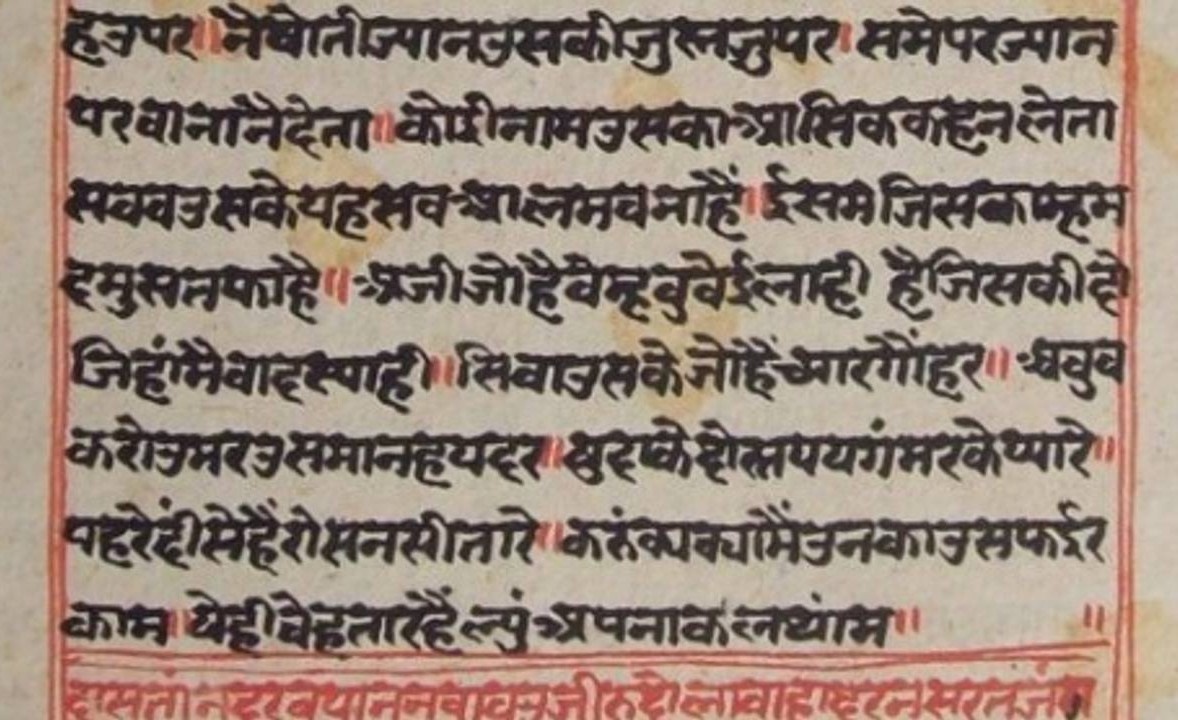 हउपर॥ नैषोतीज्यानउसकीजुस्नजुपर। समेपरज्यान
परवानांनैदेता॥ कोईनामउसकाआसिककहनलेता
सववउसकेयहसवआलमवनाहैं॥ ईसमजिसकाम्हम
दमुसतफाहै॥ अजीजोहैवैम्हवुवेईलाही हैजिसकीदो
जिहांमैवादस्याही॥ सिवाउसकेजोहैंच्यारगौंहर॥ अवुव
करोउमरउसमानहयदर॥ षुदाकेदोस्तपयगंमरकेप्यारे॥
पहरेदींसेहैंरोसनसीतारे॥ करुंक्याक्यामैंउनकाउसफईर
काम॥ येहीवेहतारहैंल्युंअपनाकलथांम॥ ॥